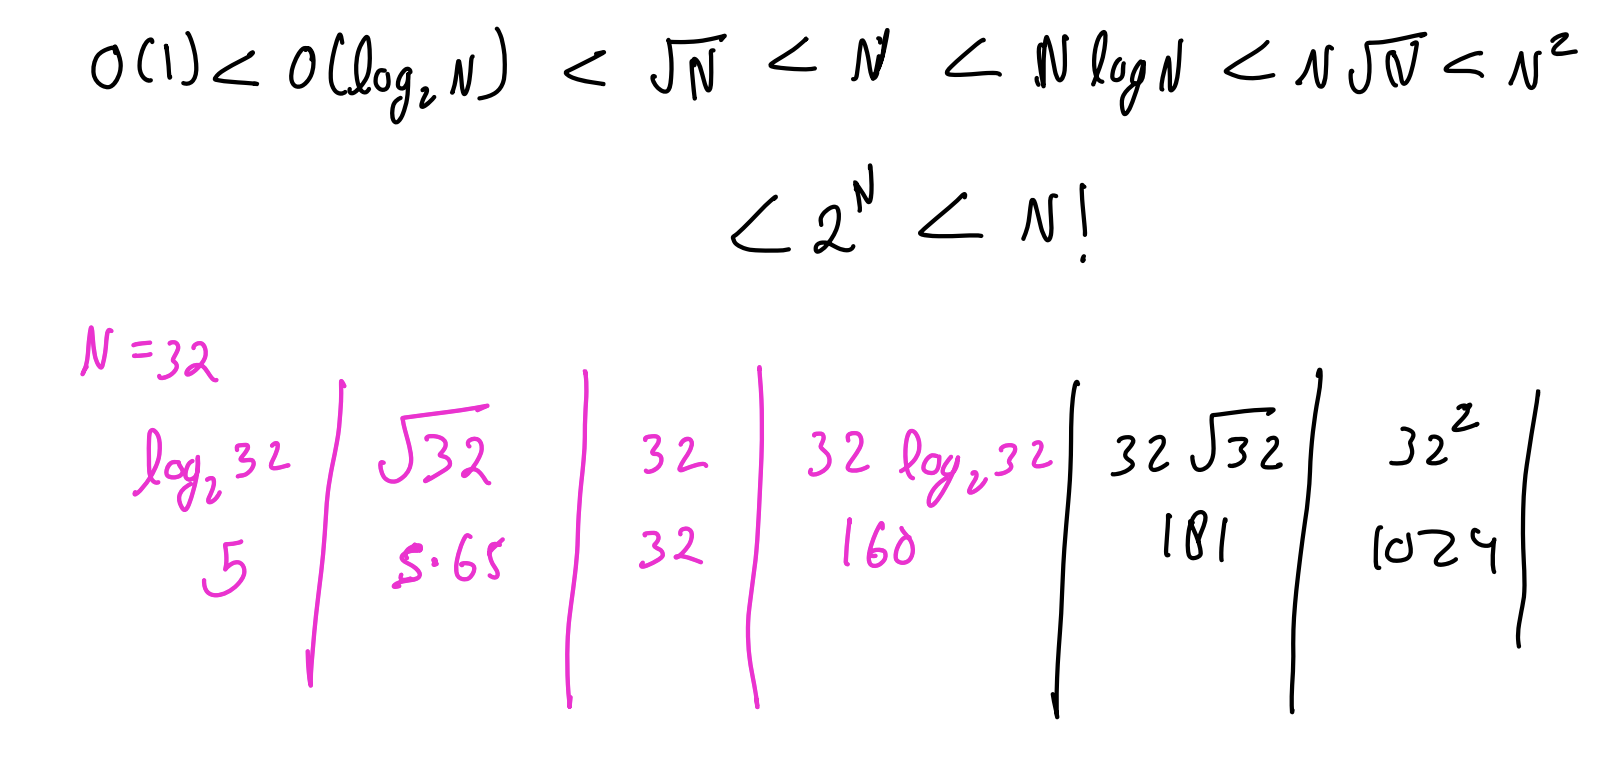 O(1) < O(log₂ N) < √N < N < N log N < N√N < N²
< 2ᴺ < N!
N = 32
log₂ 32 | √32 | 32 | 32 log₂ 32 | 32 √32 | 32² |
5 | 5.65 | 32 | 160 | 181 | 1024 |